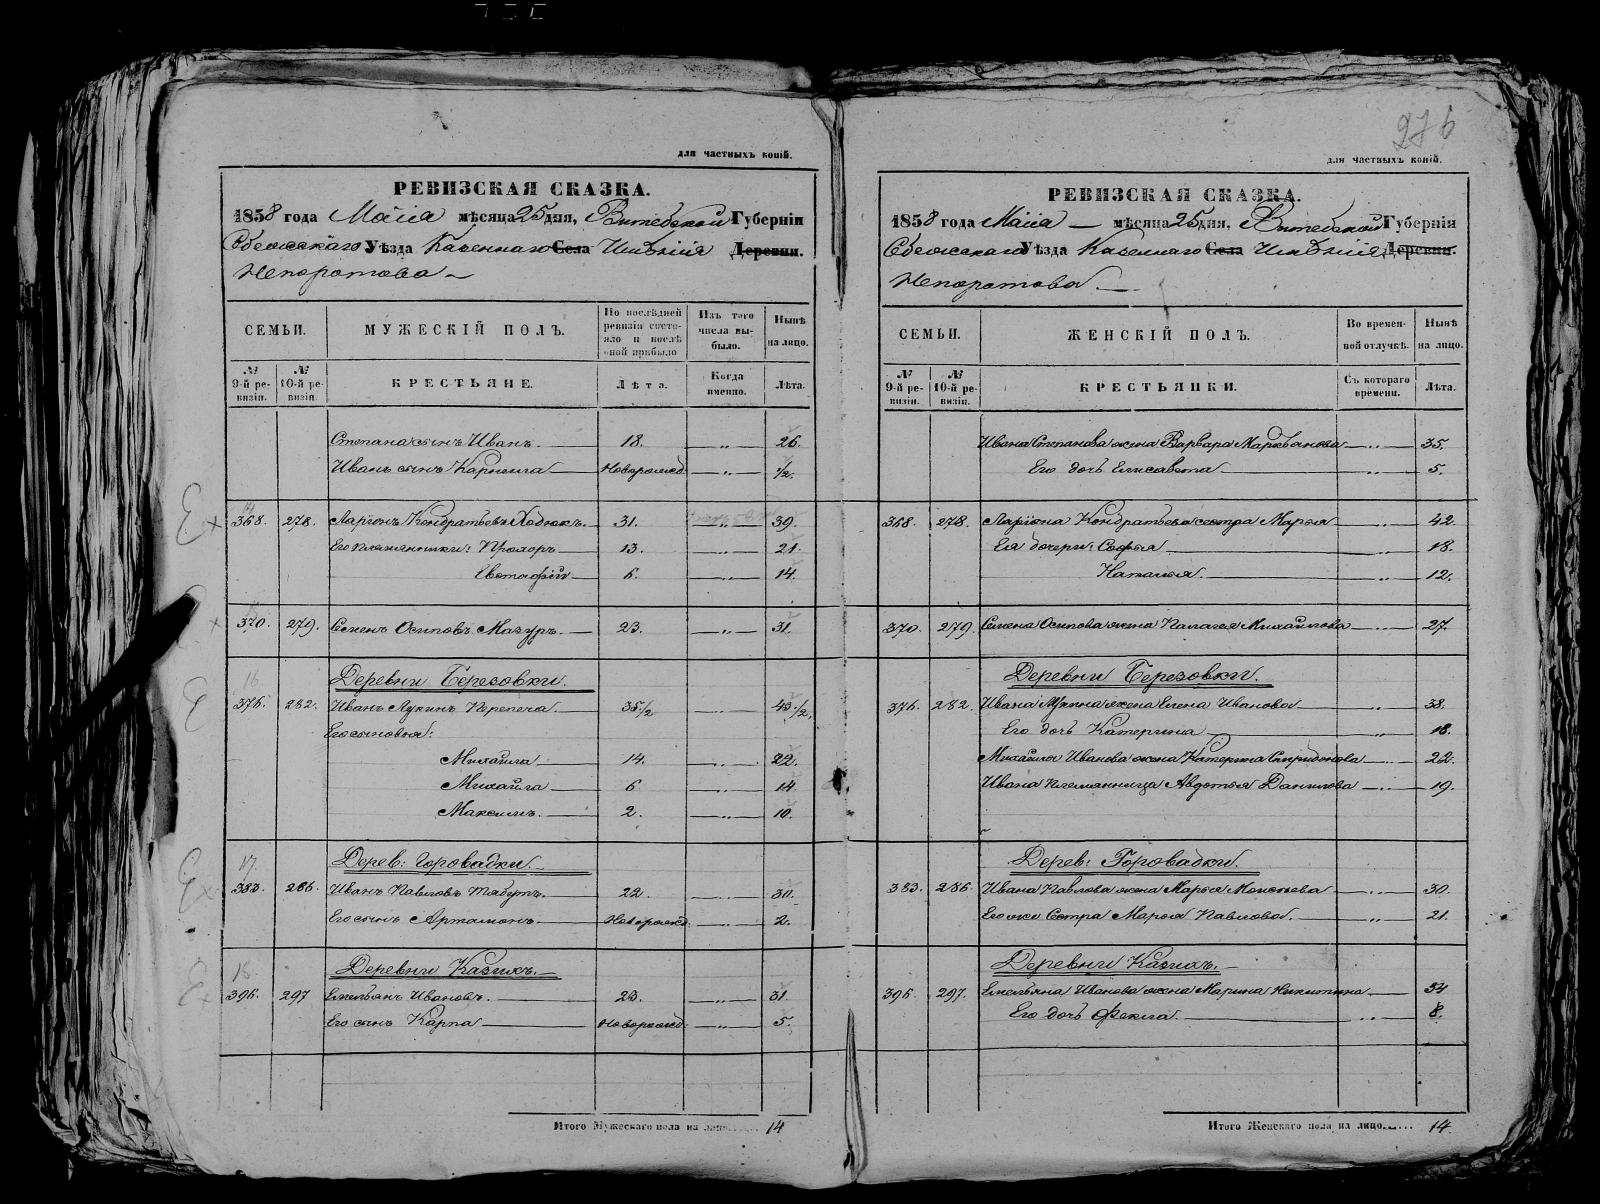 276
для частныхъ копій.
РЕВИЗСКАЯ СКАЗКА.
1858 года Маія мѣсяца 25 дня, Витебской Губерніи
Себежскаго Уѣзда Казеннаго Села Имѣнія Деревни.
Непоротова
СЕМЬИ.
МУЖЕСКІЙ ПОЛЪ.
По послѣдней ревизіи состояло и послѣ оной прибыло
Изъ того числа выбыло.
Нынѣ на лицо.
№ 9-й ревизіи.
№ 10-й ревизіи.
КРЕСТЬЯНЕ.
Лѣта.
Когда именно.
Лѣта.
Степана сынъ Иванъ. 18. „ 26.
Иванъ сынъ Корнила Новорожд. „ 1/2.
368. 278. Ларіонъ Кондратьевъ Ходюкъ. 31. „ 39.
Его племянники: Прохоръ 13. „ 21.
Евстафій 6. „ 14.
370. 279. Семенъ Осиповъ Мазуръ. 23. „ 31.
Деревни Березовки.
376. 282. Иванъ Лукинъ Перепеча 35 1/2 „ 43 1/2.
Его сыновья:
Михайла 14. „ 22.
Михайла 6 „ 14.
Максимъ. 2. „ 10.
17.
Дерев: Горовадки.
383. 286. Иванъ Павловъ 22. „ 30.
Его сынъ Артамонъ. Новорожд. „ 2.
18.
Деревни Казихъ.
396. 297 Емельянъ Ивановъ. 23. „ 31.
Его сынъ Карпа Новорожд. „ 5.
Итого Мужескаго пола на лицо 14
для частныхъ копій.
РЕВИЗСКАЯ СКАЗКА.
1858 года Маія мѣсяца 25 дня, Витебской Губерніи
Себежскаго Уѣзда Казеннаго Села Имѣнія Деревни.
Непоротова.
СЕМЬИ.
ЖЕНСКІЙ ПОЛЪ.
Во временной отлучкѣ.
Нынѣ на лицо.
№ 9-й ревизіи.
№ 10-й ревизіи.
КРЕСТЬЯНКИ.
Съ котораго времени.
Лѣта.
Ивана Степанова жена Варвара Маркьанова „ 35.
Его дочь Елисавета „ 5.
368. 278. Ларіона Кондратьева сестра Марья „ 42.
Ея дочери: Софья „ 18.
Наталья. „ 12.
370. 279. Семена Осипова жена Палагея Михайлова „ 27.
Деревни Березовки.
376. 282. Ивана Лукина жена Елена Иванова „ 38.
Его дочь Катерина „ 18.
Михайлы Иванова жена Катерина Спиридонова „ 22.
Ивана племянница Авдотья Данилова „ 19.
Дерев: Горовадки.
383. 286. Ивана Павлова жена Марья Моисеева „ 30.
Его же Сестра Марья Павлова. „ 21.
Деревни Казихъ.
396. 297. Емельяна Иванова жена Марина Никитина „ 34
Его дочь Фекла. „ 8.
Итого Женскаго пола на лицо 14.